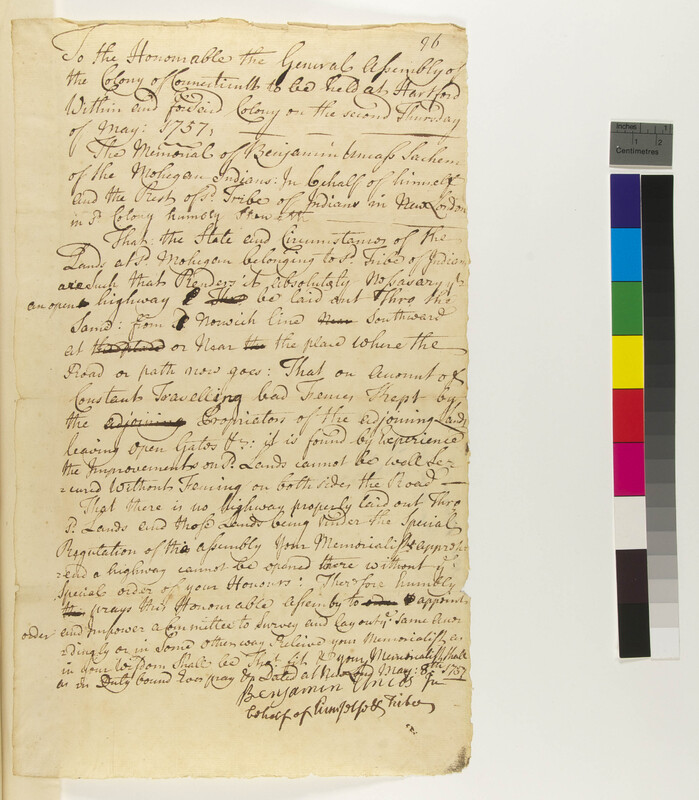 96
To the Honourable the General Assembly of
the Colony of Connecticutt to be held at Hartford
Within and for said Colony on the second Thursday
of May: 1757,
The Memorial of Benjamin Uncass Sachem
of the Mohegan Indians: In behalf of himself
and the Rest of sd. Tribe of Indians in New London
in sd. Colony humbly Sheweth
That the State and Circumstances of the
Lands at sd. Mohegan belonging to sd. Tribe of Indians
are such that Renders it Absolutely Nessasary yt
an open highway be laid out Thro the
Same: from Norwich line Near Southward
at the place or Near the the place where the
Road or path now goes: That on Account of
Constant Travelling bad Fences kept by
the adjoining Propriators of the adjoining Lands
leaving open Gates &c: it is found by Experience
the Improvements on sd. Lands cannot be well Se-
cured Without Fencing on both sides the Road
That there is no highway properly laid out Thro
sd. Lands and those Lands being under the Special
Regulation of this Assembly Your Memorialists appreh-
end a highway cannot be opened there without ye
Special order of your Honours: Therefore humbly
prays this Honourable Assembly to order appoint
order and Impower a Committee to Survey and Lay out ye Same Accor
dingly or in Some other way Relieve your Memorialists as
in your Wisdom Shall be Thot fit & your Memorialists Shall
as in Duty bound Ever pray &c Dated at New Lond May: 8th 1757
Benjamin Uncas In
behalf of himself & Tribe
Inches 1
1 2
Centimetres